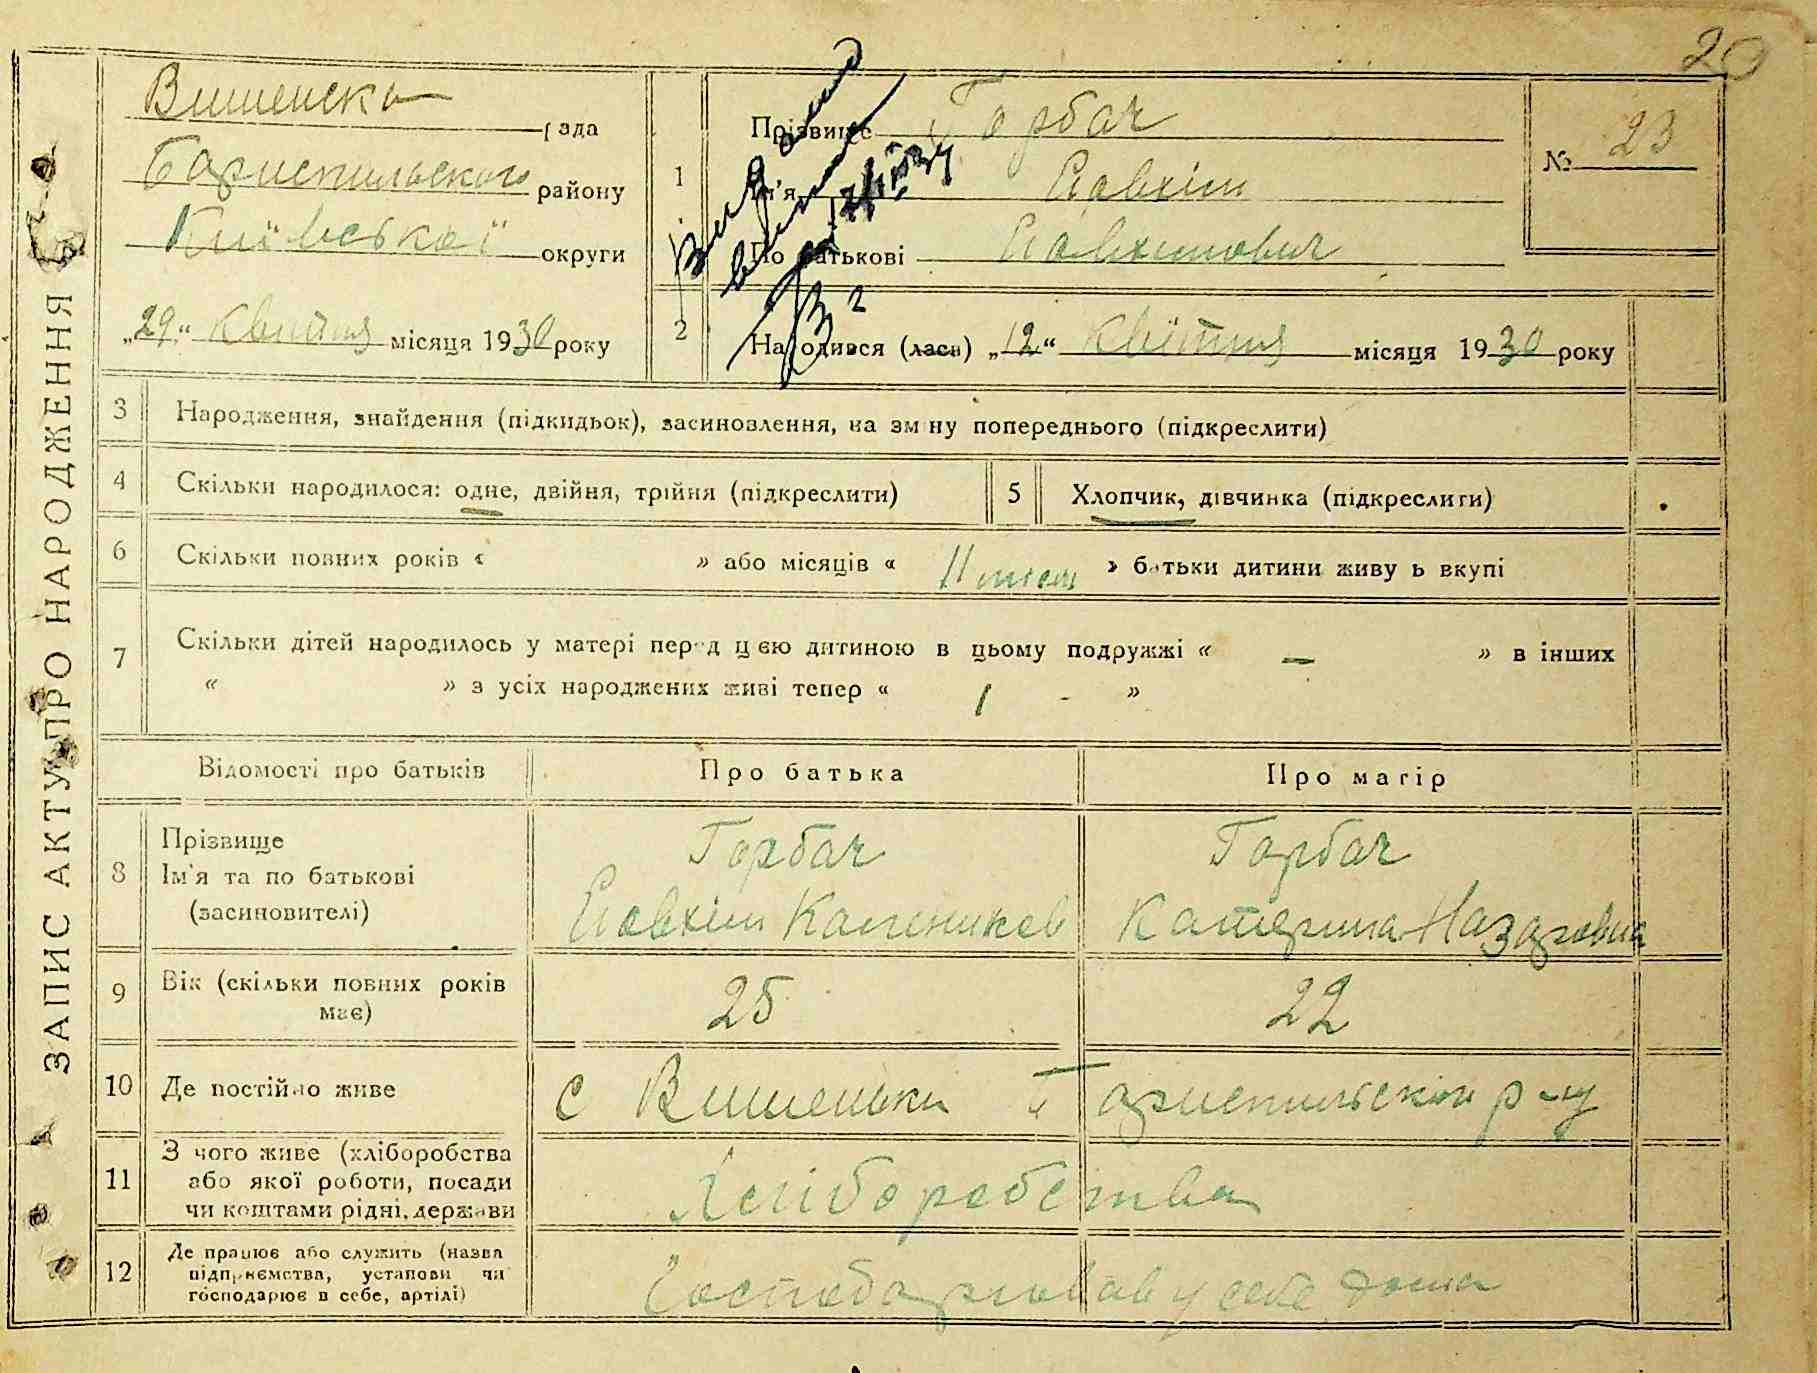 20
ЗАПИС АКТУ ПРО НАРОДЖЕННЯ
Вишенська рада
Бориспільского району
Київської округи
„29“ квітня місяця 1930 року
1
Прізвище Горбач
Ім'я Явхім
По батькові Явхимович
№ 23
2
Народився (лася) „12“ квітня місяця 1930 року
3 Народження, знайдення (підкидьок), засиновлення, на зміну попереднього (підкреслити)
4 Скільки народилося: одне, двійня, трійня (підкреслити)
5 Хлопчик, дівчинка (підкреслити)
6 Скільки повних років « » або місяців « 11 » батьки дитини живуть вкупі
7 Скільки дітей народилось у матері перед цією дитиною в цьому подружжі « — » в інших
« » з усіх народжених живі тепер « 1 - »
Відомості про батьків Про батька Про матір
8 Прізвище
Ім'я та по батькові
(засиновителі)
Горбач
Явхім Калеников
Горбач
Катерина Назаровна
9 Вік (скільки повних років
має)
25 22
10 Де постійно живе с Вишеньки Бориспільскои р-ну
11 З чого живе (хліборобства
або якої роботи, посади
чи коштами рідні, держави
Хліборобства
12 Де працює або служить (назва
підприємства, установи чи
господарює в себе, артілі)
у себе дома